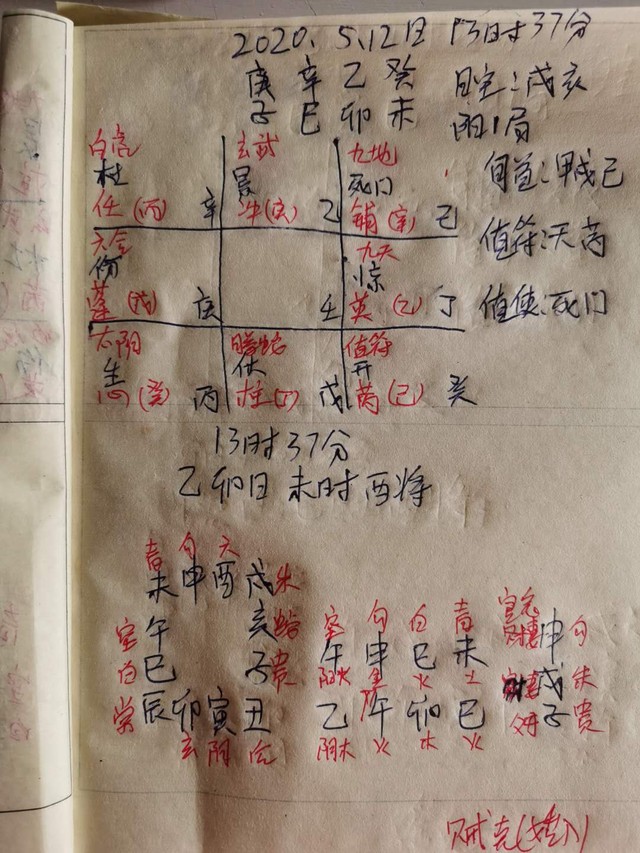 2020.5.12日 13时37分
庚 辛 乙 癸 日空:戌亥
子 巳 卯 未 阴1局
白虎 玄武 九地 旬首:甲戌己
杜 景 死门
任(丙) 辛 冲(庚) 乙 辅(辛) 己 值符:天芮
六合 九天
伤 惊
蓬(戊) 庚 壬 英(乙) 丁 值使:死门
太阴 螣蛇 值符
生 休 开
心(癸) 丙 柱(丁) 戊 芮(己) 癸
13时37分
乙卯日 未时 酉将
青 勾 六
未 申 酉 戌 朱
空 午 亥 蛇 空 勾 白 青 申 勾
白 巳 子 贵 午 申 巳 未 戌 朱
常 辰 卯 寅 丑 乙 午 卯 巳 子 贵
玄 阴 后 阴木 火 木 火